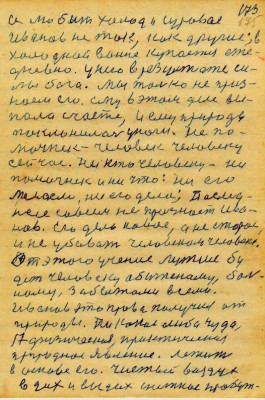 173
се любит холод и суровое
Иванов не так, как другие, в
холодной ванне купается еже-
дневно. У него в результате си-
лы бога. Мы только не приз-
наем его. Ему в этом деле вы-
пало счастье, и ему природа
поклонилась у ноги. Не по-
мощник человек человеку
сейчас. Ни кто человеку ни
помощник и ни что: ни его
ни его дело. Послед-
нее совсем не признает Ива-
нов. Его дело новое, а не старое,
и не убивать человеком человека.
От этого учение лучше бу
дет человеку обиженному, бол-
ному, забытому всеми.
Иванов это право получил от
природы. Ни какое либо чудо,
А физическая, практическая
природное явление. Лежит
в основе его. Чистый воздух
вдох и выдох снежное пробуж-